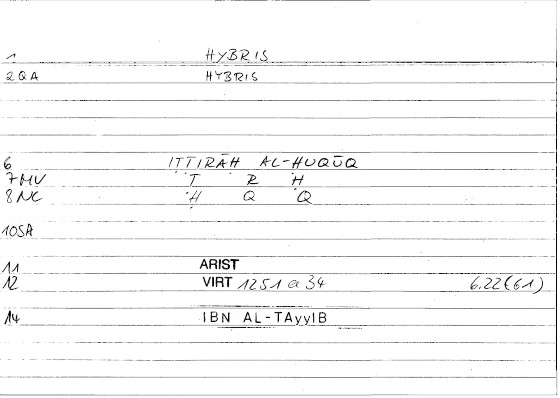 1 HYBRIS
2QA HYBRIS
6 ITTIRĀḤ AL-ḤUQŪQ
7MV Ṭ R Ḥ
8NC Ḥ Q Q
10SA
11 ARIST
12 VIRT 1251 a 34 6.22(61)
14 IBN AL-TAyyIB